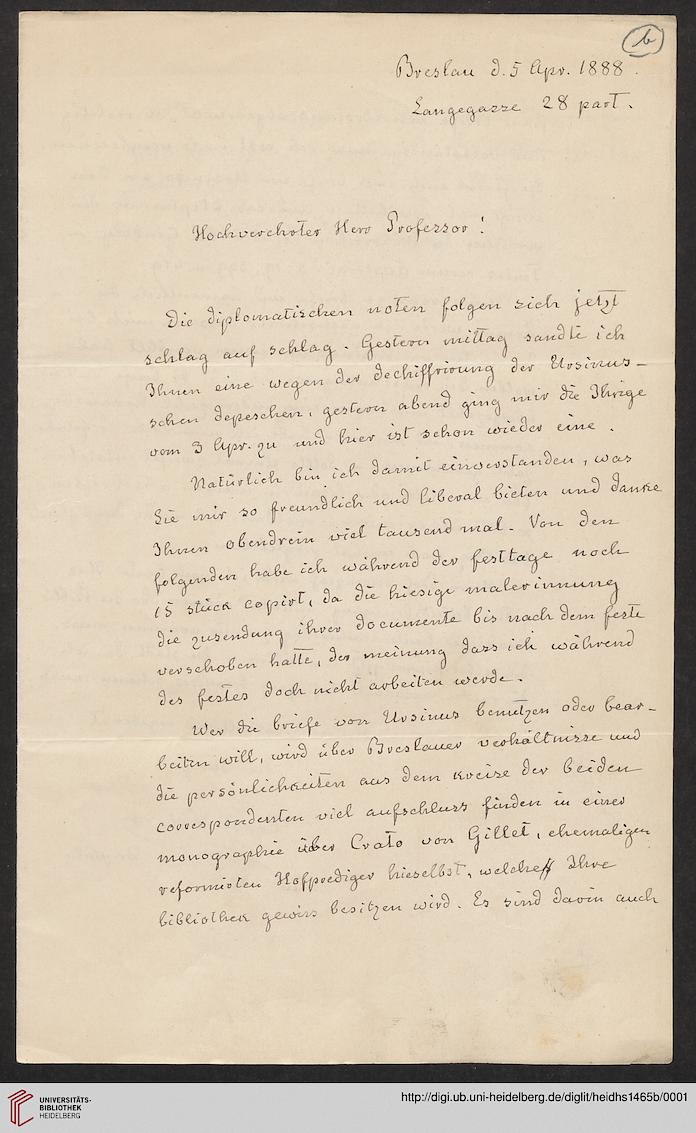 b
Breslau d. 5 Apr. 1888.
Langegasse 28 part.
Hochverehrter Herr Professor!
Die diplomatischen noten folgen sich jetzt
schlag auf schlag. Gestern mittag sandte ich
Ihnen eine wegen der dechiffrirung der Ursinus-
schen depeschen, gestern abend ging mir die Ihrige
vom 3 Apr. zu und hier ist schon wieder eine.
Natürlich bin ich damit einverstanden, was
Sie mir so freundlich und liberal bieten und danke
Ihnen obendrein viel tausend mal. Von den
folgenden habe ich während der festtage noch
15 stück copirt, da die hiesige malerinnung
die zusendung ihrer documente bis nach dem feste
verschoben hatte, der meinung dass ich während
des festes doch nicht arbeiten werde.
Wer die briefe von Ursinus benutzen oder bear-
beiten will, wird über Breslauer verhältnisse und
die persönlichkeiten aus dem kreise der beiden
correspondenten viel aufschluss finden in einer
monographie über Crato von Gillet, ehemaligen
reformirten Hofprediger hieselbst, welche Ihre
bibliothek gewiss besitzen wird. Es sind darin auch
UNIVERSITÄTS-
BIBLIOTHEK
HEIDELBERG
http://digi.ub.uni-heidelberg.de/diglit/heidhs1465b/0001